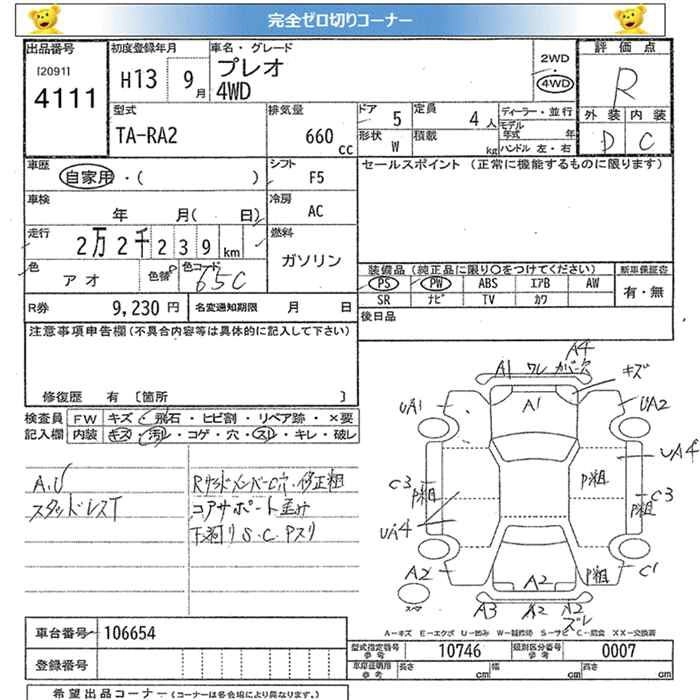 完全ゼロ切りコーナー
出品番号
I20911
4111
初度登録年月
H13 9月
車名・グレード
プレオ
4WD
2WD
・
4WD
評価点
R
外装 内装
D C
型式
TA-RA2
排気量
660 cc
ドア 5
定員 4 人
形状 W
積載 kg
ディーラー・並行
モデル年式 年
ハンドル 左・右
車歴
自家用・( )
シフト F5
セールスポイント (正常に機能するものに限ります)
車検
年 月( 日)
冷房 AC
走行
2万2千239km
燃料
ガソリン
色
アオ
色替
色コード
65C
装備品 (純正品に限り○をつけてください)
新車保証書
PS PW ABS エアB AW
SR ナビ TV カワ
有・無
R券 9,230 円
名変通知期限 月 日
後日品
注意事項申告欄(不具合内容等は具体的に記入して下さい)
修復歴 有 〔箇所 〕
検査員記入欄
FW キズ・飛石・ヒビ割・リペア跡・×要
内装 キズ・汚れ・コゲ・穴・スレ・キレ・破レ
A.U
スタッドレスT
RサイドメンバーC穴・修正粗
コアサポート歪み
下廻りS.C.Pスリ
A4
A1 ワレ カバー欠
キズ
UA1
A1
UA2
UA4
C3
P粗
P粗
C3
P粗
UA4
A2
A2
P粗
C1
スペア
A3 A2 A2
ズレ
A-キズ E-エクボ U-凹み W-補修跡 S-サビ C-腐食 XX-交換済
車台番号 106654
型式指定番号
参考
10746
類別区分番号
参考
0007
登録番号
車庫証明用
参考
長さ cm 幅 cm 高さ cm
希望出品コーナー(コーナーは各会場により異なります。)